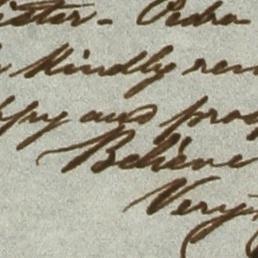 ister - Pedro
kindly rem
ppy and prosp
Believe
Very